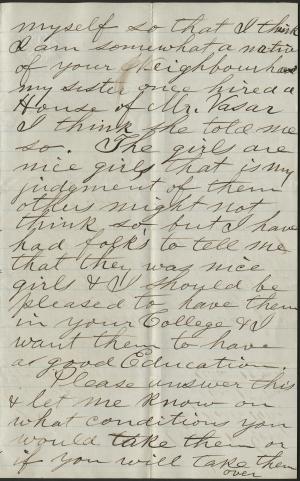 myself so that I think
I am somewhat a native
of your Neighbourhood
my sister once hired a
House of Mr. Vasar
I think she told me
so. The girls are
nice girls that is my
judgment of them
others might not
think so, but I have
had folks to tell me
that they was nice
girls & I should be
pleased to have them
in your College & I
want them to have
a good Education.
Please answer this
& let me know on
what conditions you
would take them or
if you will take them
over